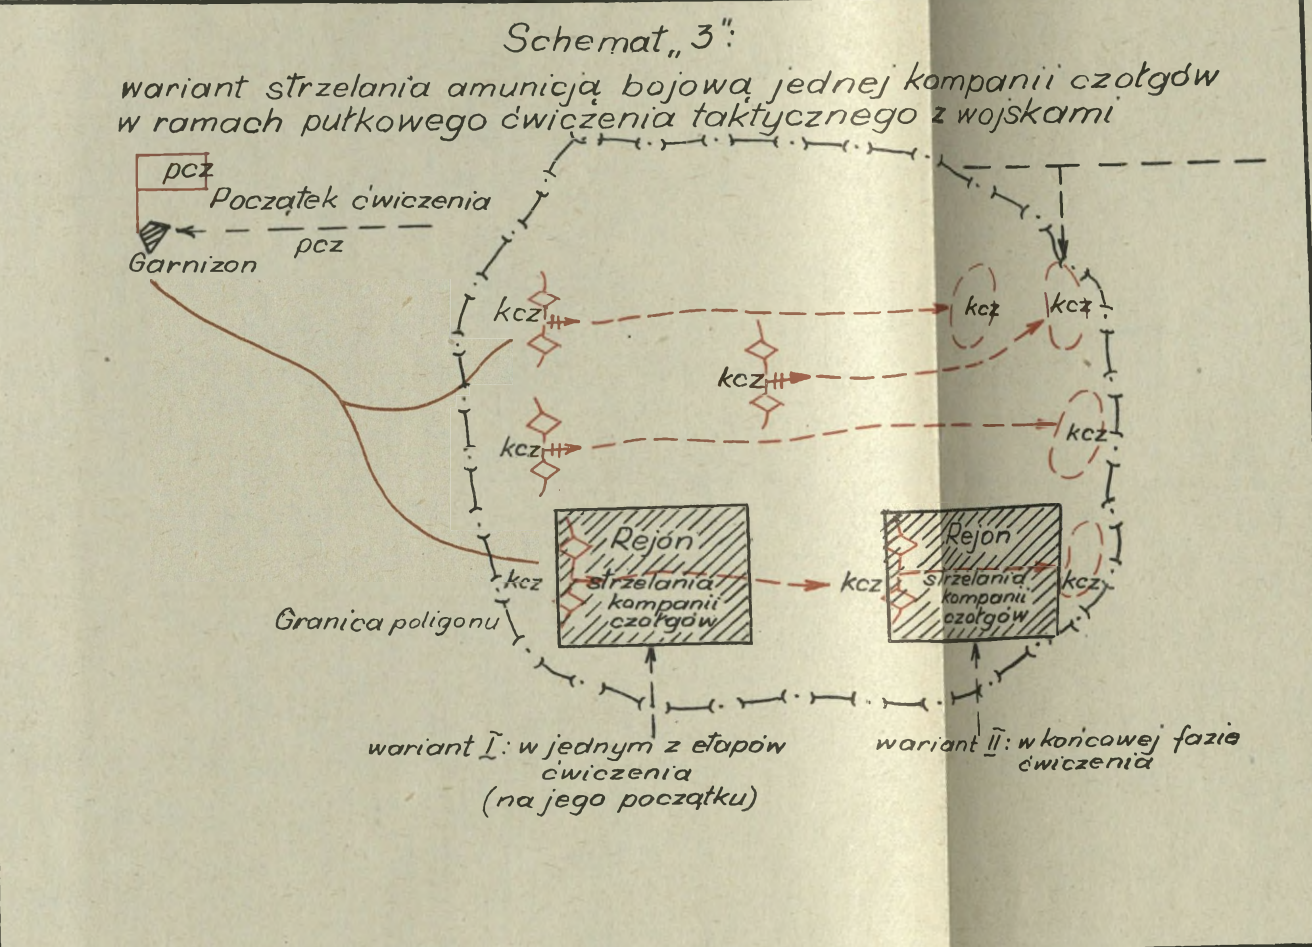 Schemat „3”:
wariant strzelania amunicją bojową jednej kompanii czołgów
w ramach pułkowego ćwiczenia taktycznego z wojskami
pcz
Początek ćwiczenia
pcz
Garnizon
kcz
kcz
kcz
kcz
kcz
kcz
Rejon
strzelania
kompanii
czołgów
Rejon
strzelania
kompanii
czołgów
kcz
kcz
kcz
Granica poligonu
wariant I: w jednym z etapów
ćwiczenia
(na jego początku)
wariant II: w końcowej fazie
ćwiczenia